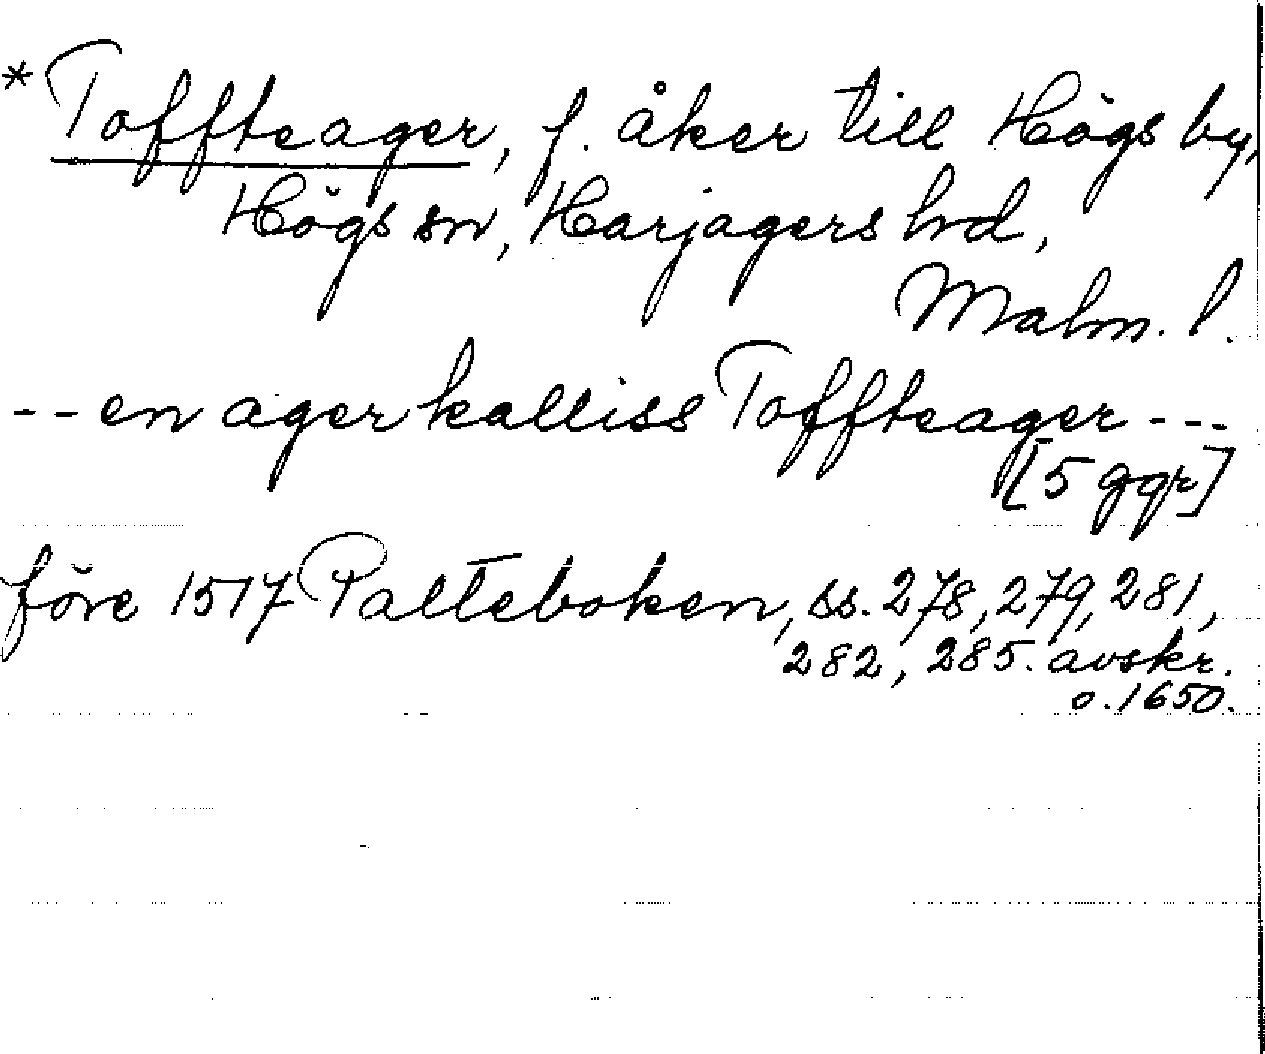 * Toffteager, f. åker till Högs by,
Högs sn, Harjagers hd,
Malm. l.
-- en ager kalliss Toffteager ---
[5 ggr]
före 1517 Palteboken, ss. 278, 279, 281,
282, 285. avskr.
o. 1650.